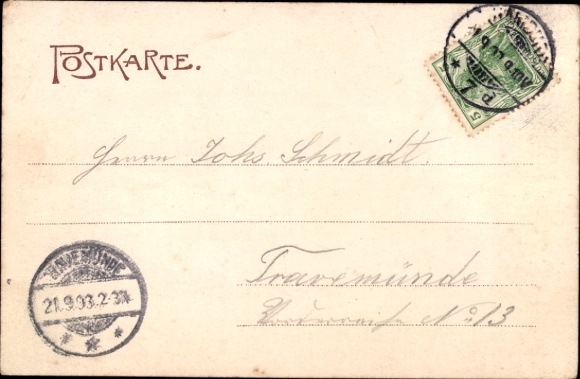 POSTKARTE.
5
Herrn Johs. Schmidt.
Travemünde
Vorderreihe No 13
TRAVEMÜNDE
21.9.03.2-3N.